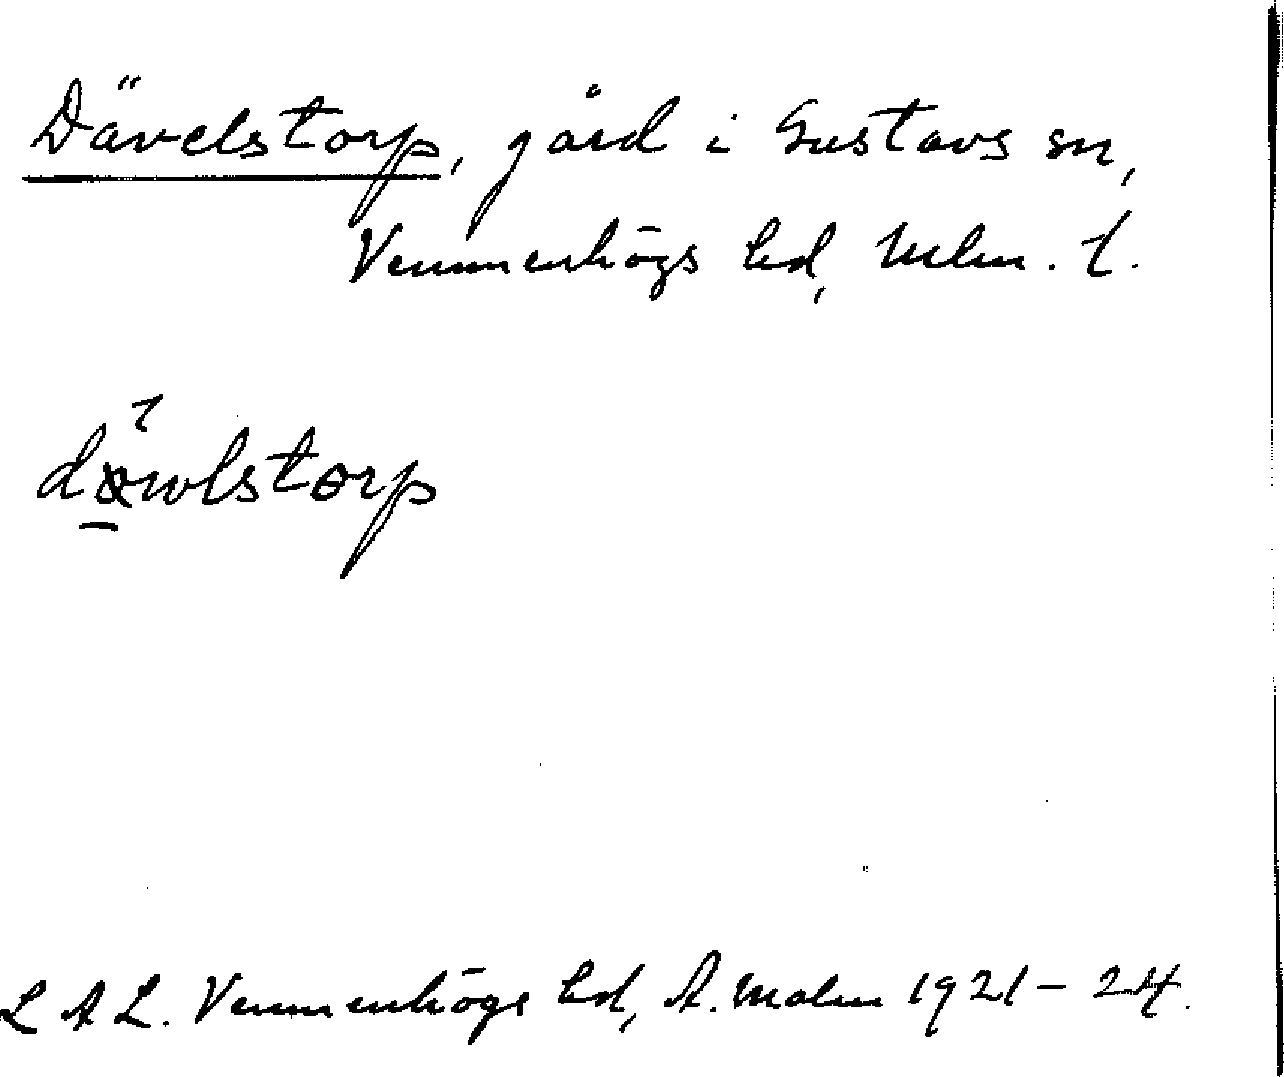 Dävelstorp, gård i Gustavs sn,
Vemmenhögs hd, Mlm. l.
L A L. Vemmenhögs hd, A. Malm 1921–24.